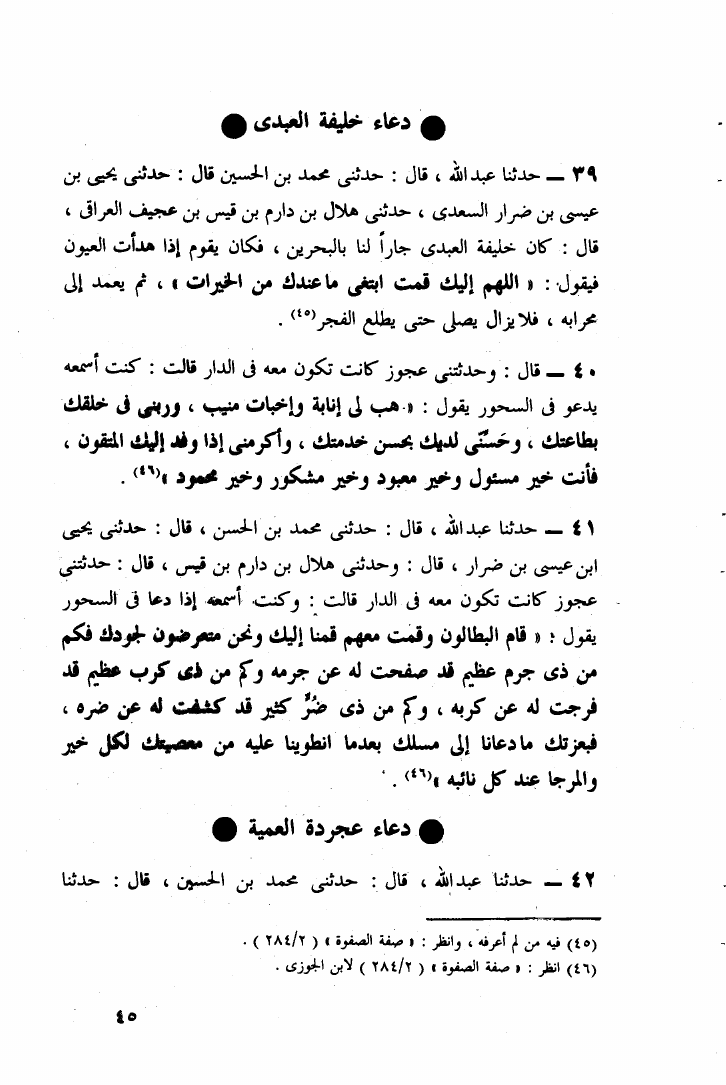 ● دعاء خليفة العبدى ●
٣٩ — حدثنا عبدالله ، قال : حدثنى محمد بن الحسين قال : حدثنى يحيى بن
عيسى بن ضرار السعدى ، حدثنى هلال بن دارم بن قيس بن عجيف العراقى ،
قال : كان خليفة العبدى جاراً لنا بالبحرين ، فكان يقوم إذا هدأت العيون
فيقول : « اللهم إليك قمت ابتغى ماعندك من الخيرات » ، ثم يعمد إلى
محرابه ، فلا يزال يصلى حتى يطلع الفجر(٤٥) .
٤٠ — قال : وحدثتنى عجوز كانت تكون معه فى الدار قالت : كنت أسمعه
يدعو فى السحور يقول : « هب لى إنابة وإخبات منيب ، وربنى فى خلقك
بطاعتك ، وحَسنّى لديك بحسن خدمتك ، وأكرمنى إذا وفد إليك المتقون ،
فأنت خير مسئول وخير معبود وخير مشكور وخير محمود »(٤٦) .
٤١ — حدثنا عبدالله ، قال : حدثنى محمد بن الحسن ، قال : حدثنى يحيى
ابن عيسى بن ضرار ، قال : وحدثنى هلال بن دارم بن قيس ، قال : حدثتنى
عجوز كانت تكون معه فى الدار قالت : وكنت أسمعه إذا دعا فى السحور
يقول : « قام البطالون وقمت معهم قمنا إليك ونحن متعرضون لجودك فكم
من ذى جرم عظيم قد صفحت له عن جرمه وكم من ذى كرب عظيم قد
فرجت له عن كربه ، وكم من ذى ضُرٍّ كثير قد كشفت له عن ضره ،
فبعزتك مادعانا إلى مسلك بعدما انطوينا عليه من معصيتك لكل خير
والمرجا عند كل نائبه »(٤٦) .
● دعاء عجردة العمية ●
٤٢ — حدثنا عبدالله ، قال : حدثنى محمد بن الحسين ، قال : حدثنا
(٤٥) فيه من لم أعرفه ، وانظر : « صفة الصفوة » ( ٢٨٤/٢ ) .
(٤٦) انظر : « صفة الصفوة » ( ٢٨٤/٢ ) لابن الجوزى .
٤٥